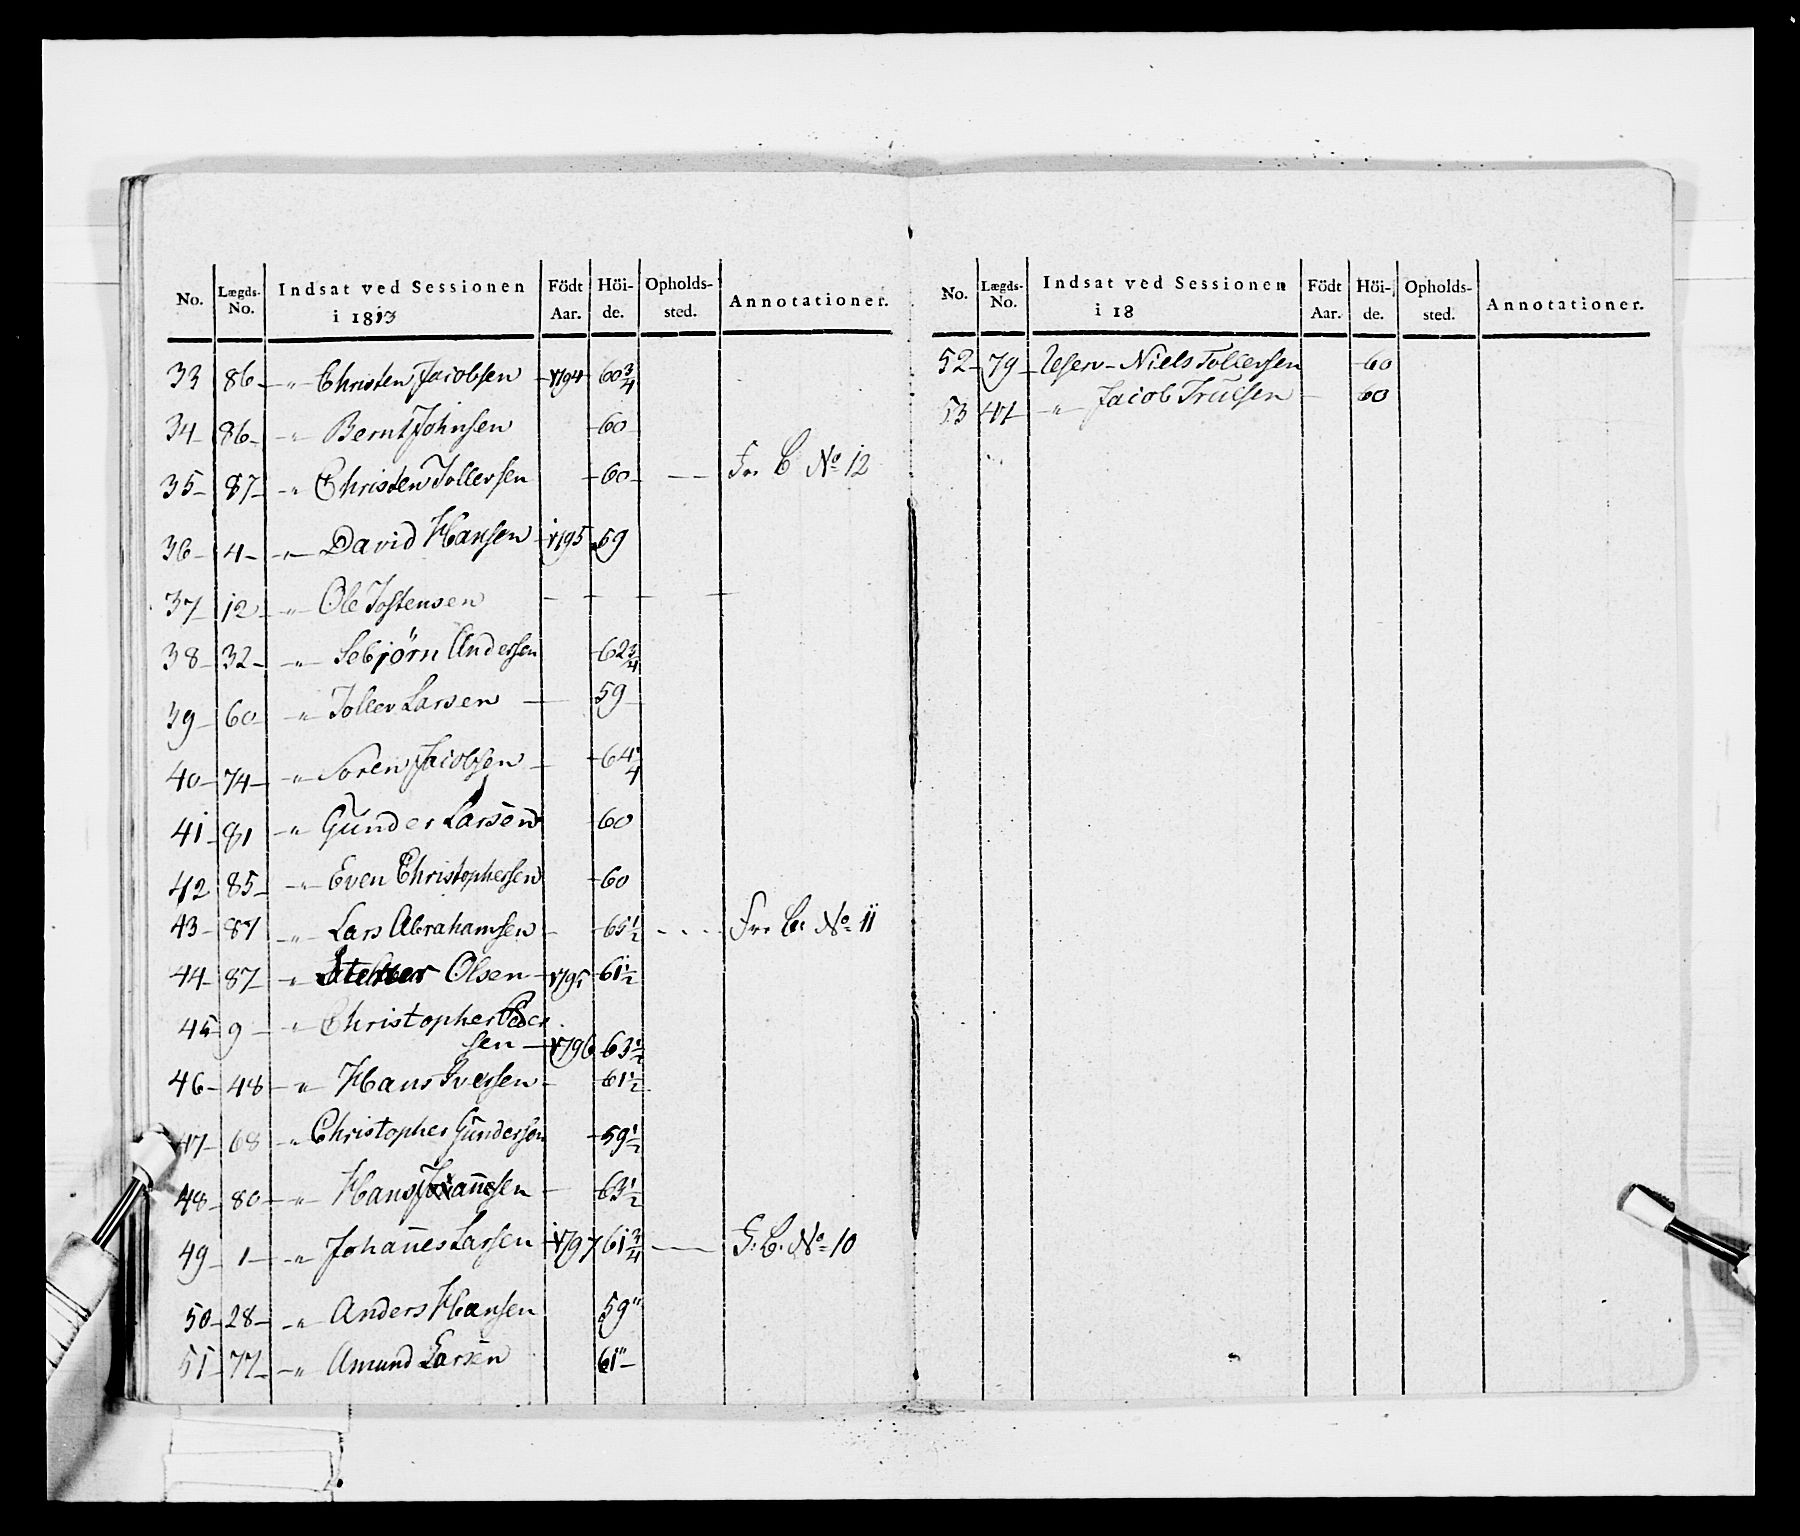 No. Lægds-No. Indsat ved Sessionen i 1813 Födt Aar. Höi-de. Opholds-sted. Annotationer.
33 86 - „ Christen Jacobsen - 1794 - 60 3/4
34 86 - „ Bernt Johnsen - 60
35 - 87 - „ Christen Tollersen - 60 - - - For C No 12
36 - 4 - „ David Hansen - 1795 59
37 12 - „ Ole Tostensen - - - -
38 - 32 - „ Sebjörn Andersen - 62 3/4
39 - 60 - „ Toller Larsen - 59
40 - 74 - „ Soren Jacobsen - - 64 1/4
41 - 81 - „ Gunder Larsen - 60
42 85 - „ Even Christophersen - 60
43 - 87 - „ Lars Abrahamsen - - 65 1/2 - - - - For C. No 11
44 - 87 - „ Olsen - 1795 - 61 1/2
45 9 - „ Christopher Peder
sen - 1796 - 63 1/2
46 - 48 - „ Hans Iversen - - 61 1/2
47 - 68 - „ Christopher Gundersen - 59 1/2
48 - 80 - „ Hans Johannesen - - 63 1/2
49 - 1 - „ Johannes Larsen - 1797 61 3/4 - F. C. No 10
50 - 28 - „ Anders Hansen 59"
51 - 77 - „ Amund Larsen 61" -
No. Lægds-No. Indsat ved Sessionen i 18 Födt Aar. Höi-de. Opholds-sted. Annotationer.
52 - 79 - Reserv - Niels Tollersen - 60
53 41 - „ Jacob Trulsen - 60